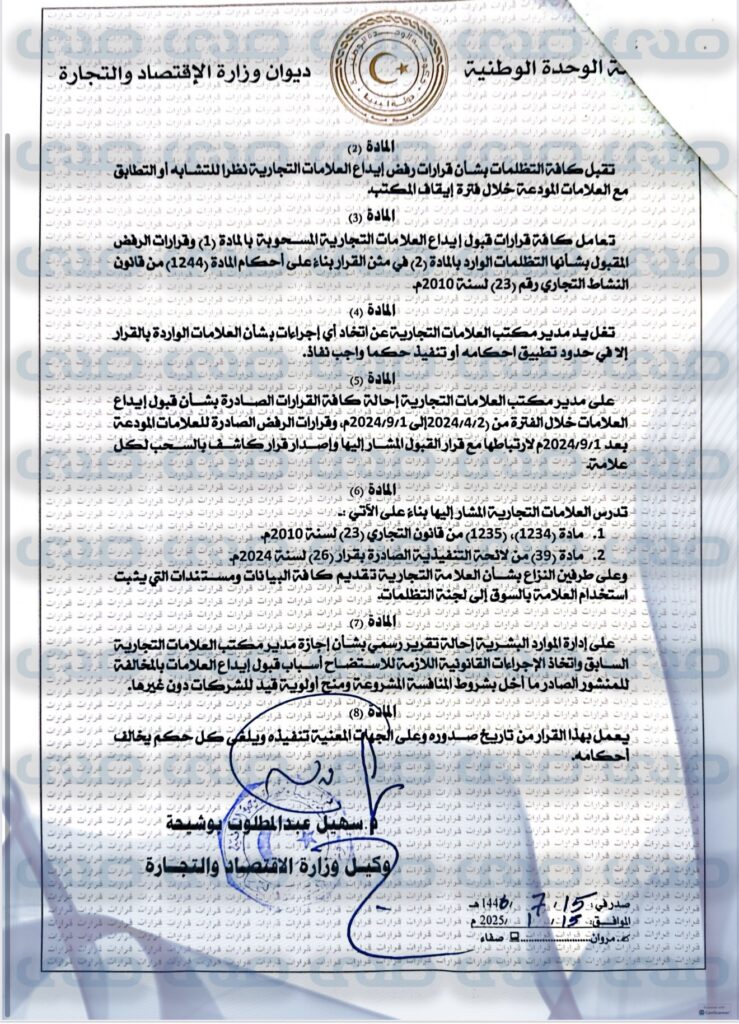 ـة الوحدة الوطنية
ديوان وزارة الإقتصاد والتجارة
المادة (2)
تقبل كافة التظلمات بشأن قرارات رفض إيداع العلامات التجارية نظرا للتشابه أو التطابق
مع العلامات المودعة خلال فترة إيقاف المكتب.
المادة (3)
تعامل كافة قرارات قبول إيداع العلامات التجارية المسحوبة بالمادة (1) وقرارات الرفض
المقبول بشأنها التظلمات الوارد بالمادة (2) في متن القرار بناء على أحكام المادة (1244) من قانون
النشاط التجاري رقم (23) لسنة 2010م.
المادة (4)
تغل يد مدير مكتب العلامات التجارية عن اتخاذ أي إجراءات بشأن العلامات الواردة بالقرار
إلا في حدود تطبيق احكامه أو تنفيذ حكما واجب نفاذ.
المادة (5)
على مدير مكتب العلامات التجارية إحالة كافة القرارات الصادرة بشأن قبول إيداع
العلامات خلال الفترة من (2024/4/2إلى 2024/9/1م، وقرارات الرفض الصادرة للعلامات المودعة
بعد 2024/9/1م لارتباطها مع قرار القبول المشار إليها وإصدار قرار كاشف بالسحب لكل
علامة.
المادة (6)
تدرس العلامات التجارية المشار إليها بناء على الآتي :ـ
1. مادة (1234)، (1235) من قانون التجاري (23) لسنة 2010م.
2. مادة (39) من لائحة التنفيذية الصادرة بقرار (26) لسنة 2024م.
وعلى طرفين النزاع بشأن العلامة التجارية تقديم كافة البيانات ومستندات التي يثبت
استخدام العلامة بالسوق إلى لجنة التظلمات.
المادة (7)
على إدارة الموارد البشرية إحالة تقرير رسمي بشأن إجازة مدير مكتب العلامات التجارية
السابق واتخاذ الإجراءات القانونية اللازمة للاستضاح أسباب قبول إيداع العلامات بالمخالفة
للمنشور الصادر ما أخل بشروط المنافسة المشروعة ومنح أولوية قيد للشركات دون غيرها.
المادة (8)
يعمل بهذا القرار من تاريخ صدوره وعلى الجهات المعنية تنفيذه ويلغى كل حكم يخالف
أحكامه.
م.سهيل عبدالمطلوب بوشيحة
وكيل وزارة الاقتصاد والتجارة
صدر في: 15/7/1446هـ
الموافق: 15/1/2025م
مروان............صفاء